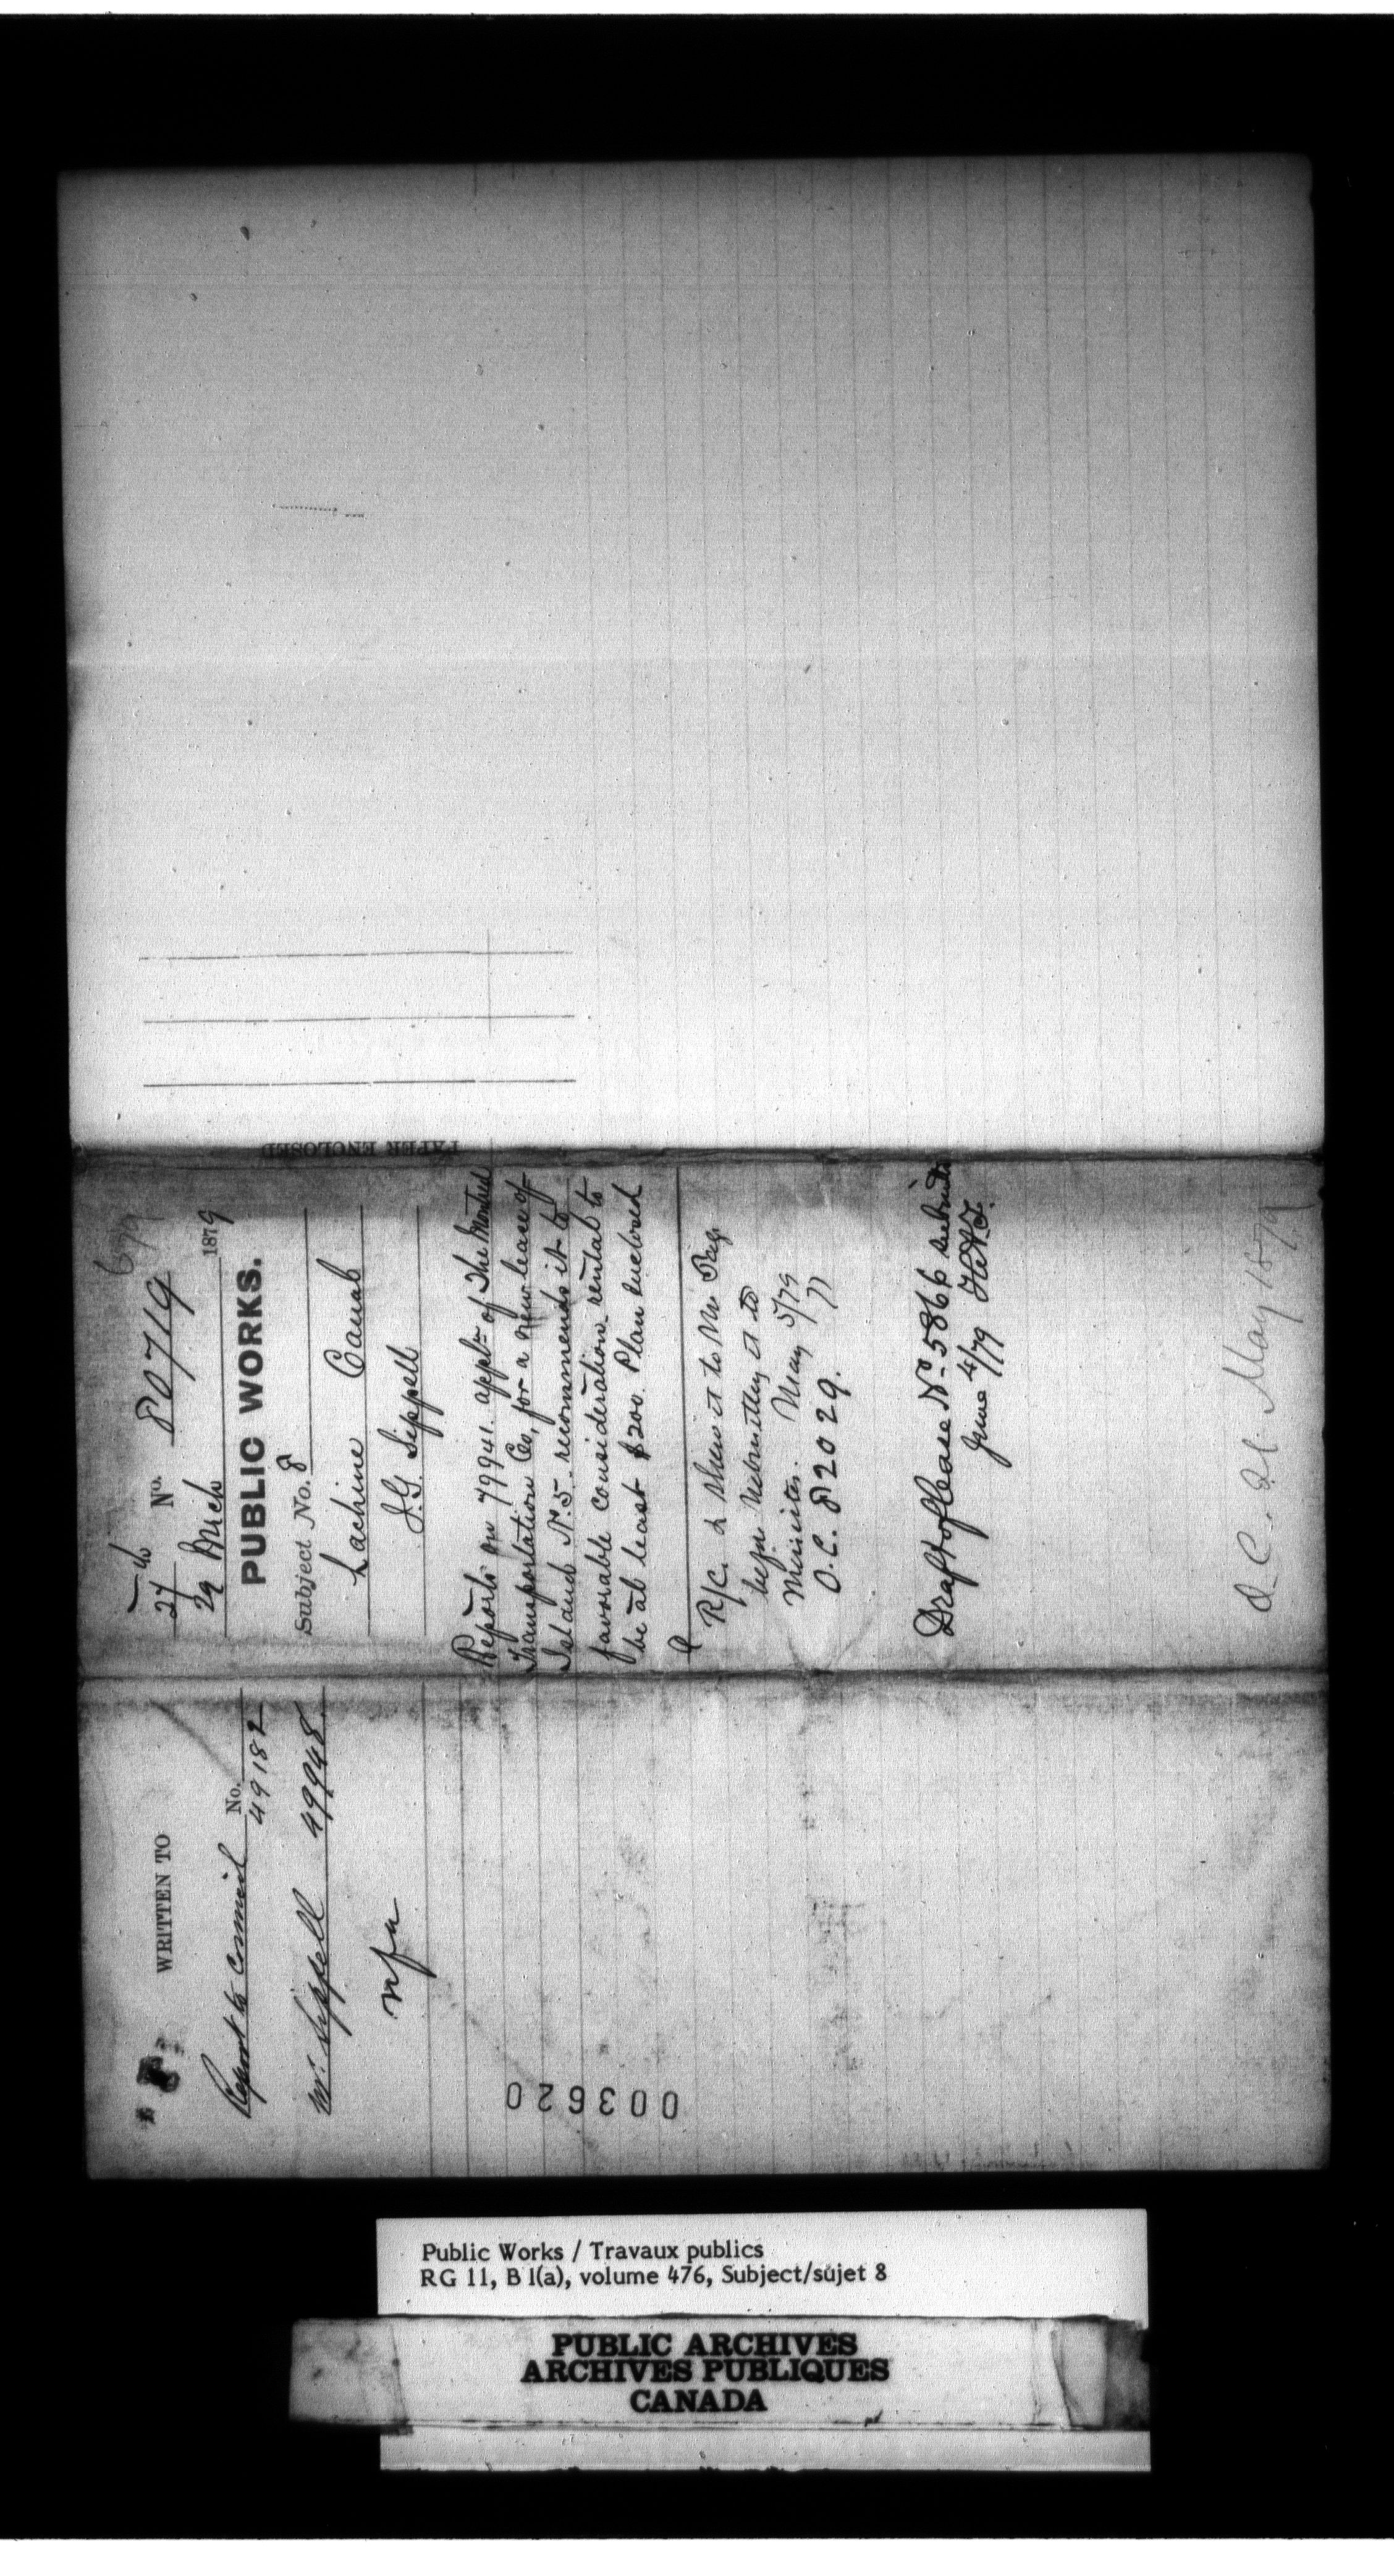 WRITTEN TO
No.
Report to Council 49182
Mr. Sippell 49948
nfa
003620
679
No. 80719
27
29 Mch 1879
PUBLIC WORKS.
Subject No. 8
Lachine Canal
J.G. Sippell
Reports on 79941. appln of The Montreal
Transportation Co, for a new lease of
Island No. 5. recommends it to
favorable consideration rental to
be at least $200. Plan enclosed
R/C. & shew it to Mr Page
before submitting it to
Minister. May 5/79
O.C. 82029.
Draft of lease No 5866 submitted
June 4/79
O.C. May 1879
PAPER ENCLOSED
Public Works / Travaux publics
RG 11, B 1(a), volume 476, Subject/sujet 8
PUBLIC ARCHIVES
ARCHIVES PUBLIQUES
CANADA